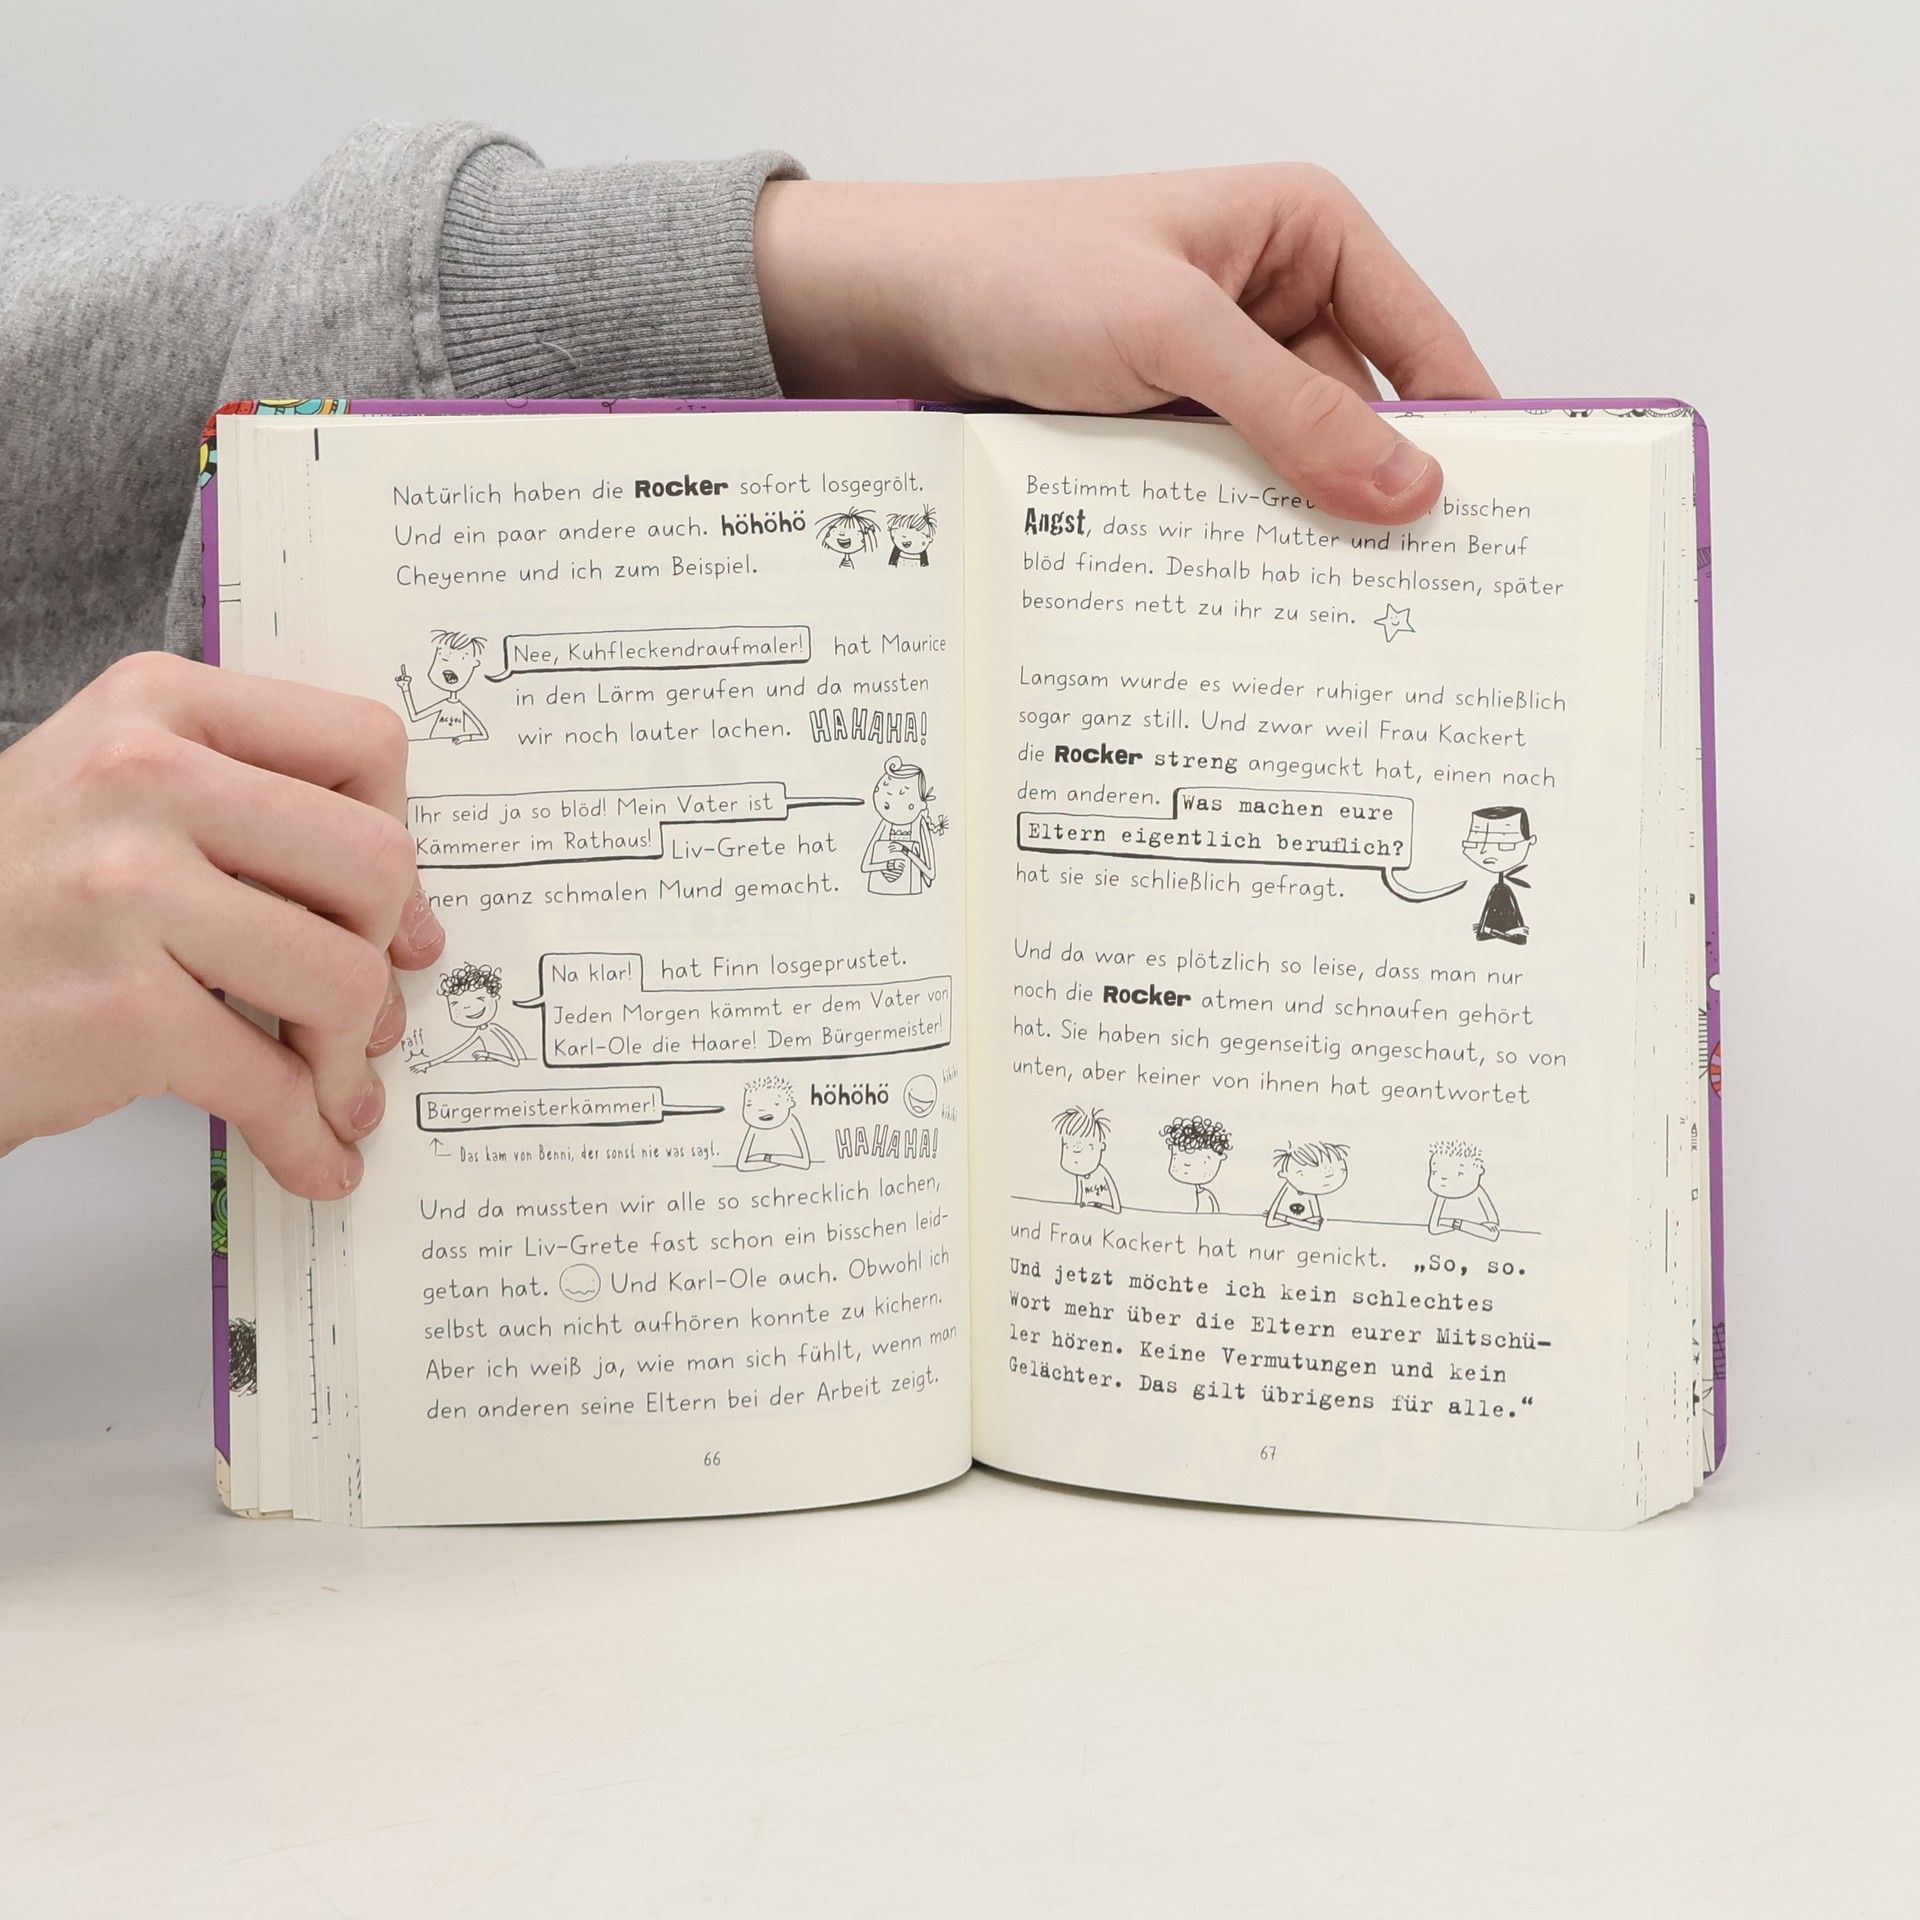 Natürlich haben die Rocker sofort losgegrölt.
Und ein paar andere auch. höhöhö
Cheyenne und ich zum Beispiel.
Nee, Kuhfleckendraufmaler! hat Maurice
in den Lärm gerufen und da mussten
wir noch lauter lachen. HAHAHA!
Ihr seid ja so blöd! Mein Vater ist
Kämmerer im Rathaus! Liv-Grete hat
ganz schmalen Mund gemacht.
Na klar! hat Finn losgeprustet.
Jeden Morgen kämmt er dem Vater von
Karl-Ole die Haare! Dem Bürgermeister!
paff
Bürgermeisterkämmer! höhöhö hihihi
hihihi
HAHAHA!
Das kam von Benni, der sonst nie was sagt.
Und da mussten wir alle so schrecklich lachen,
dass mir Liv-Grete fast schon ein bisschen leid-
getan hat. Und Karl-Ole auch. Obwohl ich
selbst auch nicht aufhören konnte zu kichern.
Aber ich weiß ja, wie man sich fühlt, wenn man
den anderen seine Eltern bei der Arbeit zeigt.
66
Bestimmt hatte bisschen
Angst, dass wir ihre Mutter und ihren Beruf
blöd finden. Deshalb hab ich beschlossen, später
besonders nett zu ihr zu sein.
Langsam wurde es wieder ruhiger und schließlich
sogar ganz still. Und zwar weil Frau Kackert
die Rocker streng angeguckt hat, einen nach
dem anderen. Was machen eure
Eltern eigentlich beruflich?
hat sie sie schließlich gefragt.
Und da war es plötzlich so leise, dass man nur
noch die Rocker atmen und schnaufen gehört
hat. Sie haben sich gegenseitig angeschaut, so von
unten, aber keiner von ihnen hat geantwortet
und Frau Kackert hat nur genickt. „So, so.
Und jetzt möchte ich kein schlechtes
Wort mehr über die Eltern eurer Mitschü-
ler hören. Keine Vermutungen und kein
Gelächter. Das gilt übrigens für alle.“
67